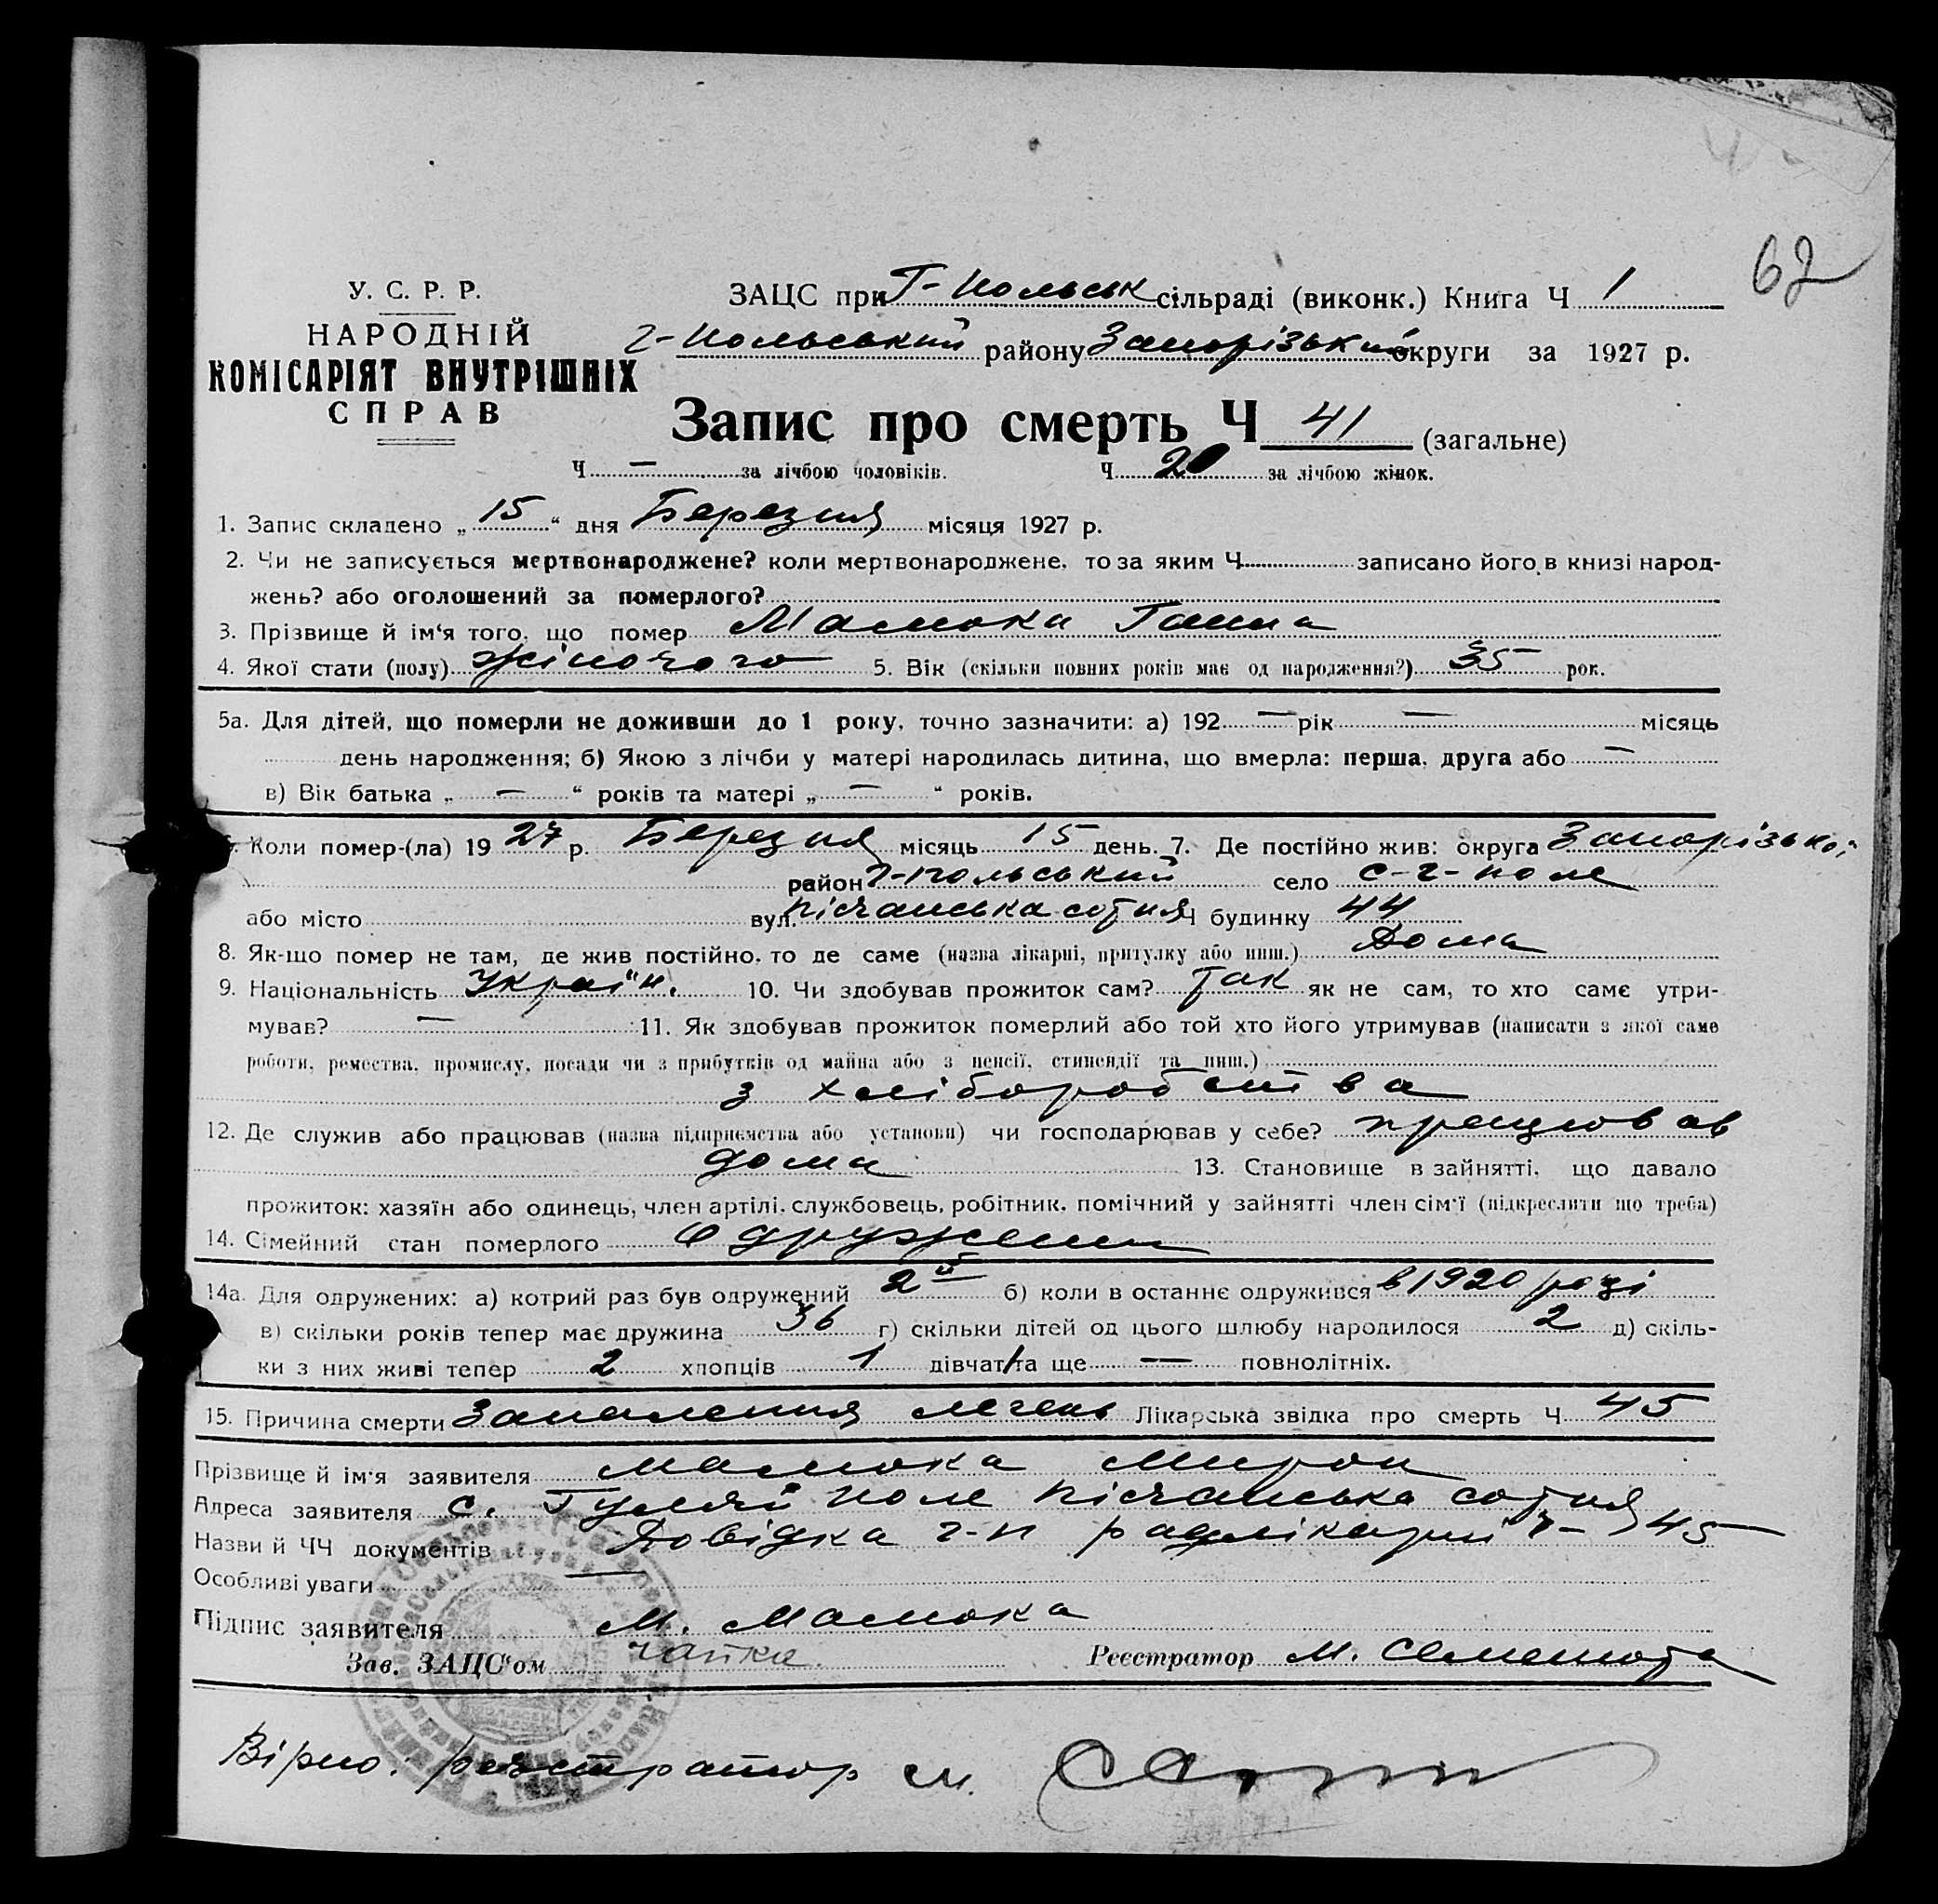 62
У. С. Р. Р.
НАРОДНІЙ
КОМІСАРІЯТ ВНУТРІШНІХ
СПРАВ
ЗАЦС при Г-Польськ сільраді (виконк.) Книга Ч 1
Г-Польський району Запорізький округи за 1927 р.
Запис про смерть Ч 41 (загальне)
Ч — за лічбою чоловіків. Ч 20 за лічбою жінок.
1. Запис складено „ 15 “ дня Березня місяця 1927 р.
2. Чи не записується мертвонароджене? коли мертвонароджене, то за яким Ч записано його в книзі народ-
жень? або оголошений за померлого?
3. Прізвище й ім‘я того, що помер Мамока Ганна
4. Якої стати (полу) жіночого 5. Вік (скільки повних років має од народження?) 35 рок.
5а. Для дітей, що померли не доживши до 1 року, точно зазначити: а) 192 — рік — місяць
день народження; б) Якою з лічби у матері народилась дитина, що вмерла: перша, друга або —
в) Вік батька „ — “ років та матері „ — “ років.
Коли помер-(ла) 19 27 р. Березня місяць 15 день. 7. Де постійно жив: округа Запорізької
район Г-польський село с-г-поле
або місто вул. пісчанська сотня Ч будинку 44
8. Як-що помер не там, де жив постійно, то де саме (назва лікарні, притулку або инш.) Дома
9. Національність Україн. 10. Чи здобував прожиток сам? так як не сам, то хто саме утри-
мував? — 11. Як здобував прожиток померлий або той хто його утримував (написати з якої саме
роботи, ремества, промислу, посади чи з прибутків од майна або з пенсії, стипендії та инш.)
з хліборобства
12. Де служив або працював (назва підприємства або установи) чи господарював у себе? працював
дома 13. Становище в зайнятті, що давало
прожиток: хазяїн або одинець, член артілі, службовець, робітник, помічний у зайнятті член сім‘ї (підкреслити що треба)
14. Сімейний стан померлого Одружени
14а. Для одружених: а) котрий раз був одружений 2й б) коли в останнє одружився в 1920 році
в) скільки років тепер має дружина 36 г) скільки дітей од цього шлюбу народилося 2 д) скіль-
ки з них живі тепер 2 хлопців 1 дівчат 1 та ще — повнолітніх.
15. Причина смерти Запалення легень Лікарська звідка про смерть Ч 45
Прізвище й ім‘я заявителя Мамока Мирон
Адреса заявителя с. Гуляй поле пісчанська сотня
Назви й ЧЧ документів Довідка г-п райлікарні ч- 45
Особливі уваги —
Підпис заявителя М. Мамока
Зав. ЗАЦС‘ом Чайка Реєстратор М.
Вірно: реєстратор М.